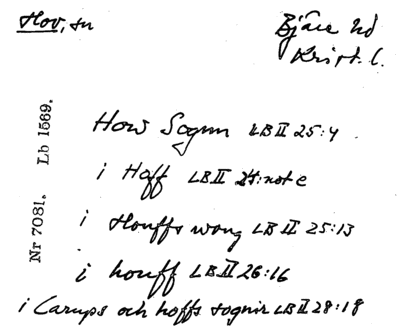 Hov, sn
Bjäre hd
Krist. l.
Lb 1569.
Nr 7081.
How Sognn LB II 25:4
i Hoff LB II 24:note
i Houffs wong LB II 25:13
i houff LB II 26:16
i Carups och hoffs sognir LB II 28:18